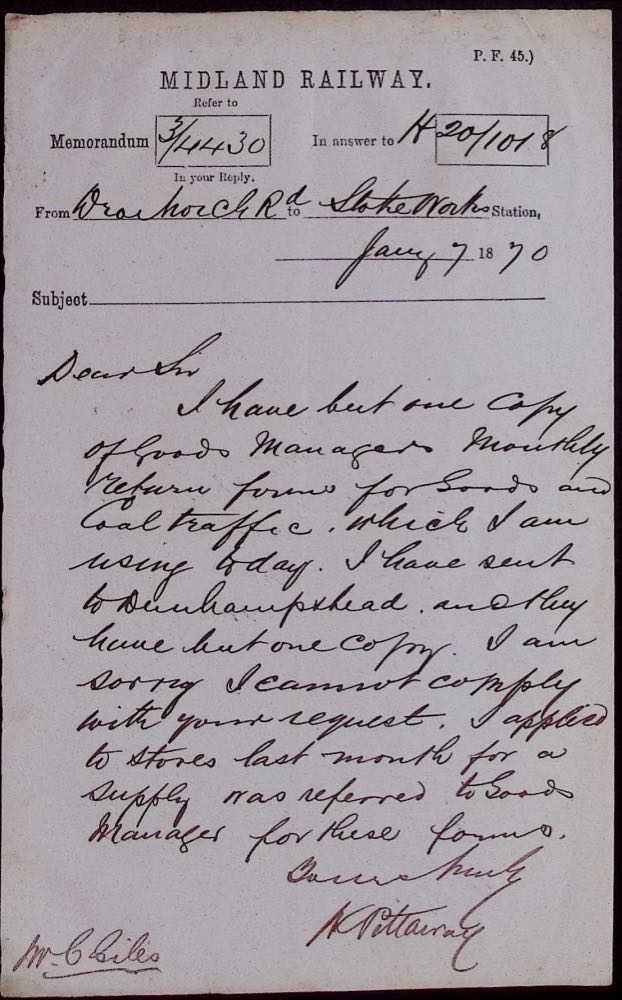 P. F. 45.)
MIDLAND RAILWAY.
Refer to
Memorandum 3/4430 In answer to H 20/1018
In your Reply.
From Droitwich Rd to Stoke Works Station,
Jany 7 1870
Subject
Dear Sir
I have but one Copy
of Goods Managers Monthly
return forms for Goods and
Coal traffic. which I am
using today. I have sent
to Dunhampstead. and they
have but one Copy. I am
sorry I cannot comply
with your request. I applied
to stores last month for a
supply was referred to Goods
Manager for these forms.
Yours truly
H Pittaway
Mr C Giles